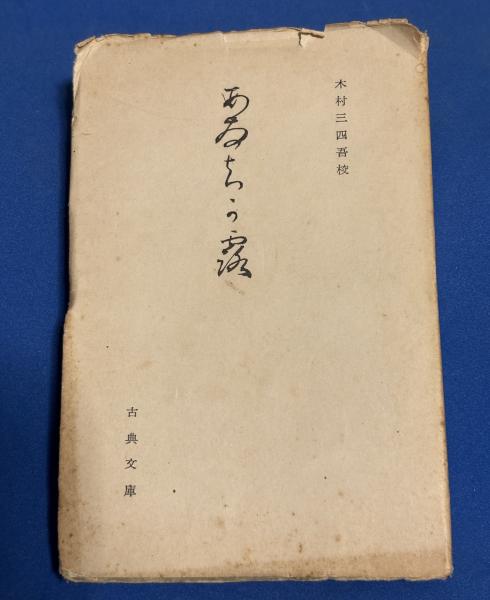 木村三四吾校
あさちか露
古典文庫